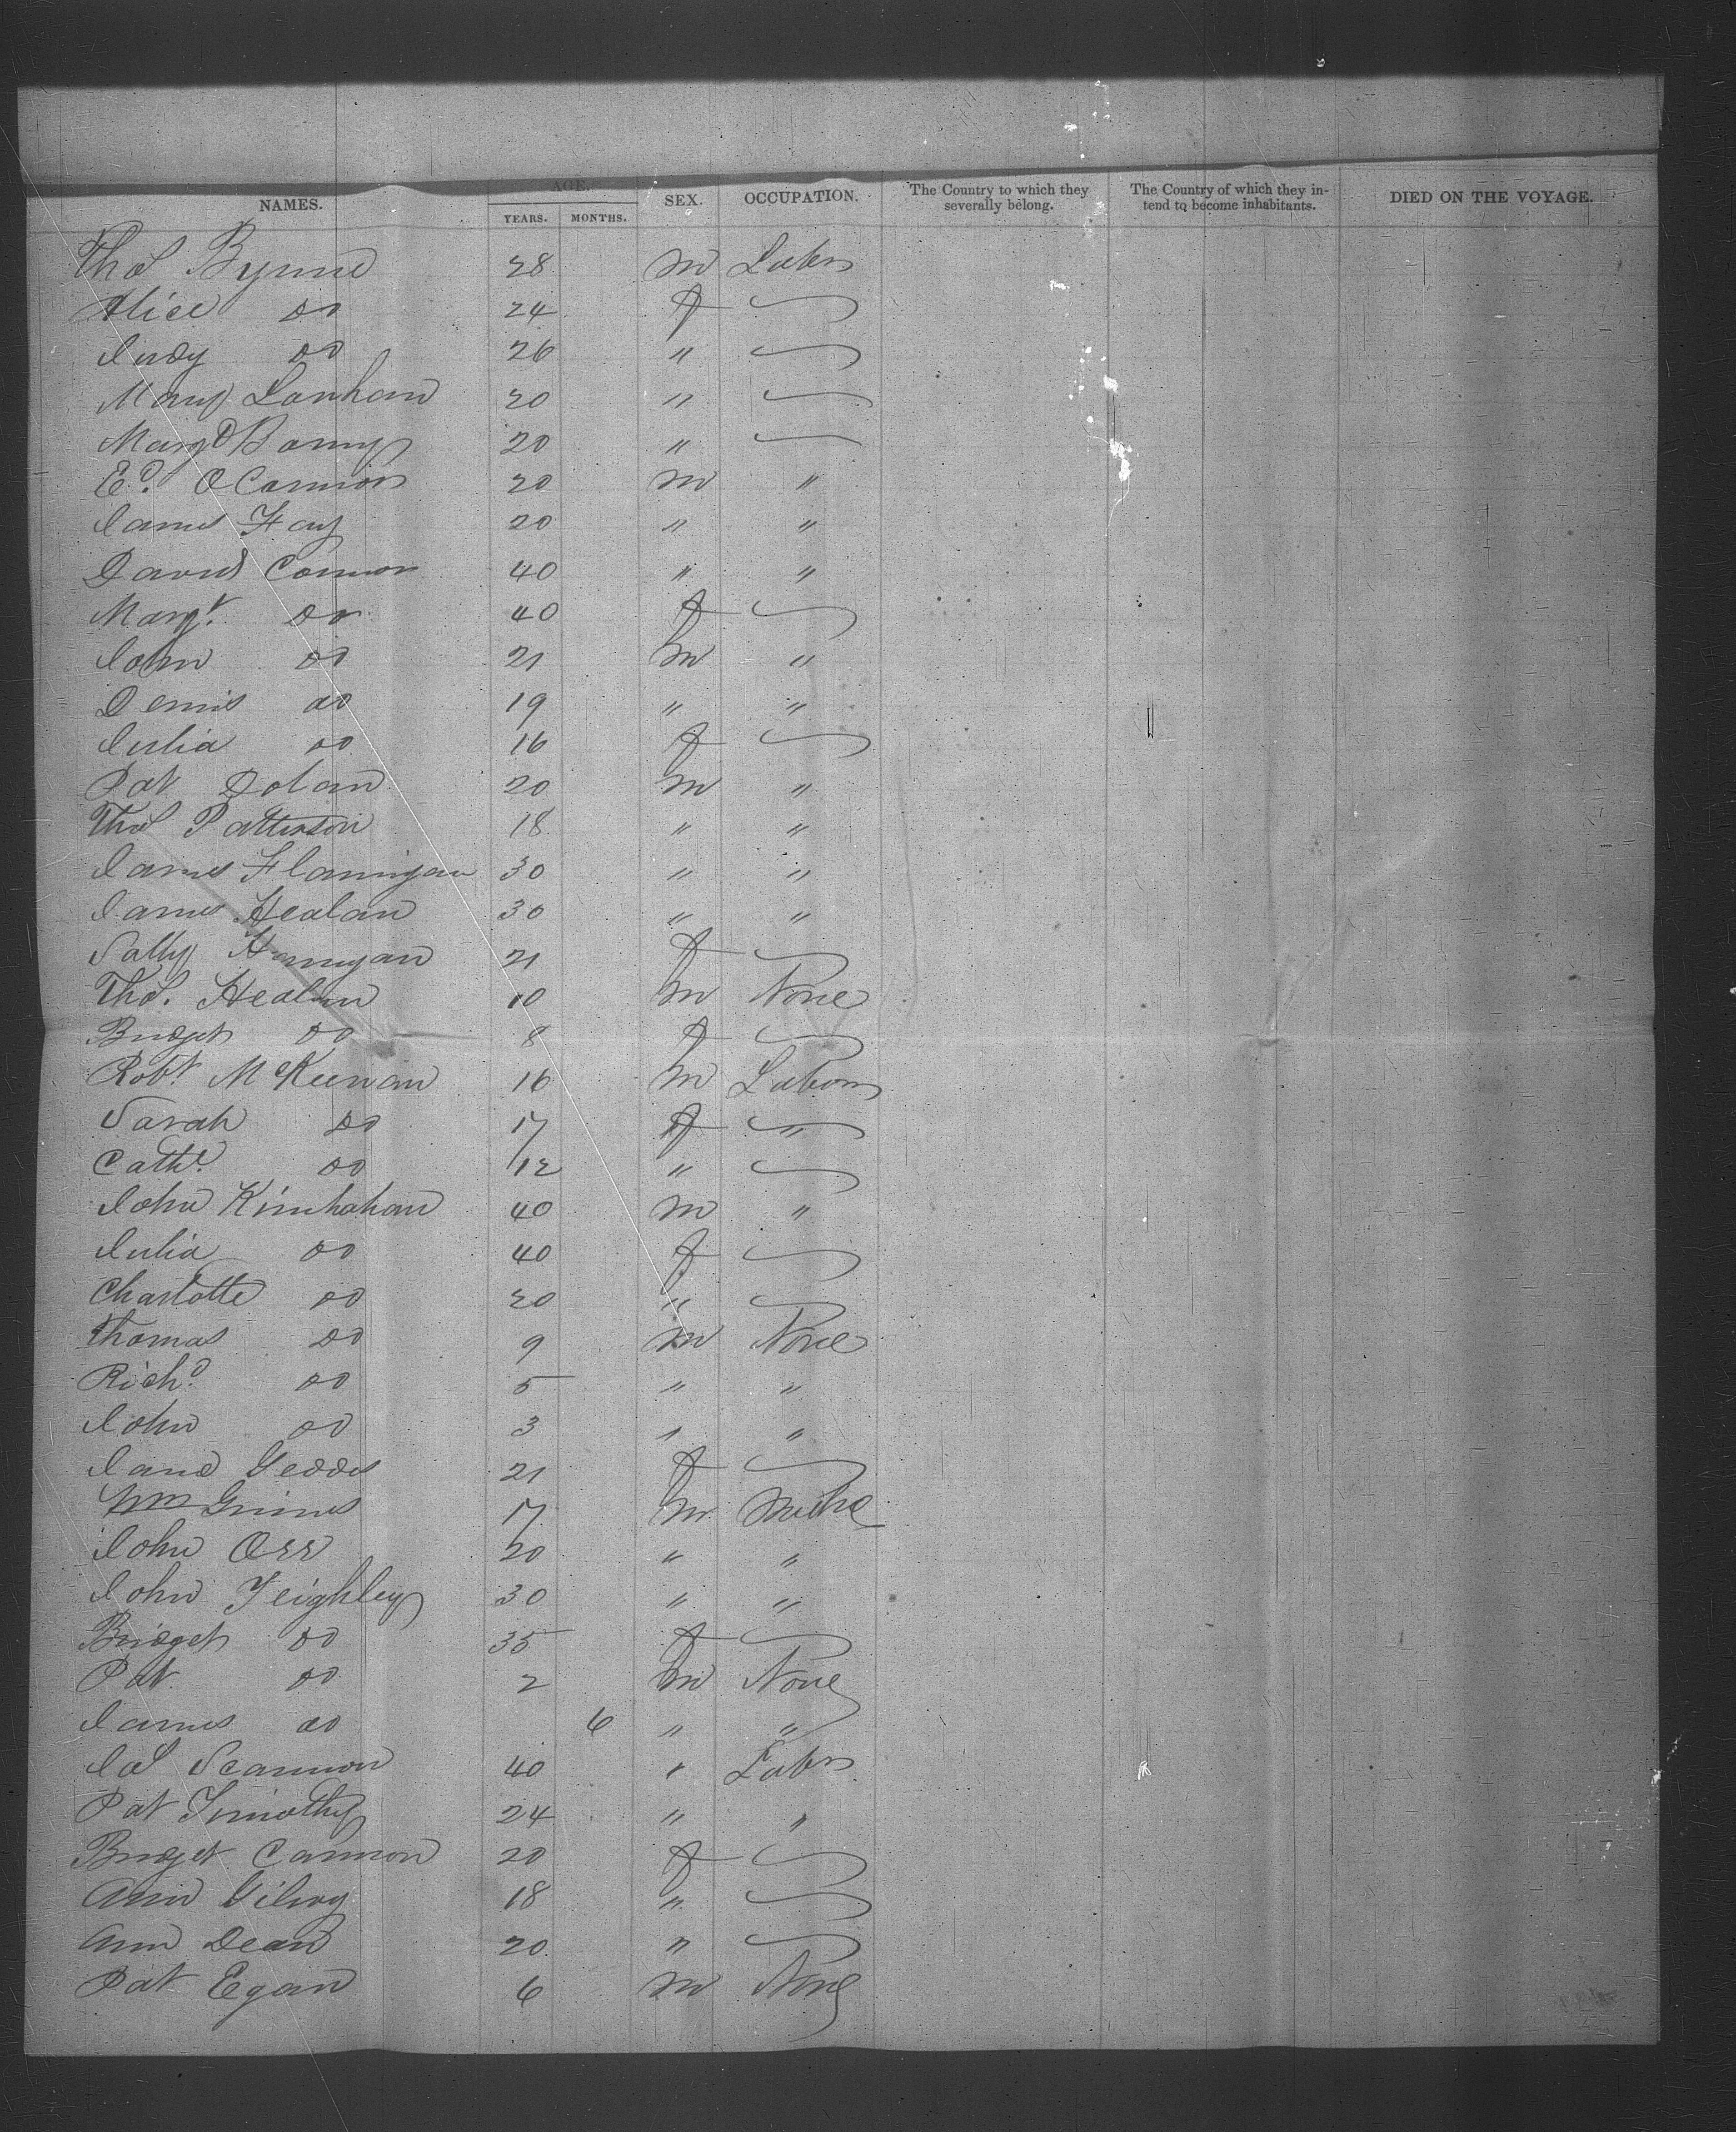 NAMES. AGE. YEARS. MONTHS. SEX. OCCUPATION. The Country to which they severally belong. The Country of which they intend to become inhabitants. DIED ON THE VOYAGE.
Thos Byrne 28 m Labr
Alice do 24 f
Judy do 26 "
Mary Lanham 20 "
Margt 20 "
Ed. OConnor 20 m "
James Fay 20 " "
David Connor 40 " "
Margt. do 40 f
John do 21 m "
Dennis do 19 " "
Julia do 16 f
Pat Dolan 20 m "
Thos Patterson 18 " "
James Flannigan 30 " "
James Healan 30 " "
Sally 21 f
Thos. Healan 10 m None
Bridget do 8 f
Robt. McKeenan 16 m Labour
Sarah do 17 f "
Cathe. do 12 "
John Kinnhahan 40 m "
Julia do 40 f
Charlotte do 20 "
Thomas do 9 m None
Richd. do 5 " "
John do 3 " "
Jane Geddes 21 f
Wm Grimes 17 m
John Orr 20 " "
John Feighley 30 " "
Bridget do 35 f
Pat do 2 m None
James do 6 " "
Jas Scannon 40 " Labr
Pat Timothy 24 " "
Bridget Cannon 20 f
Ann Gilroy 18 "
Ann Dean 20 "
Pat Egan 6 m None